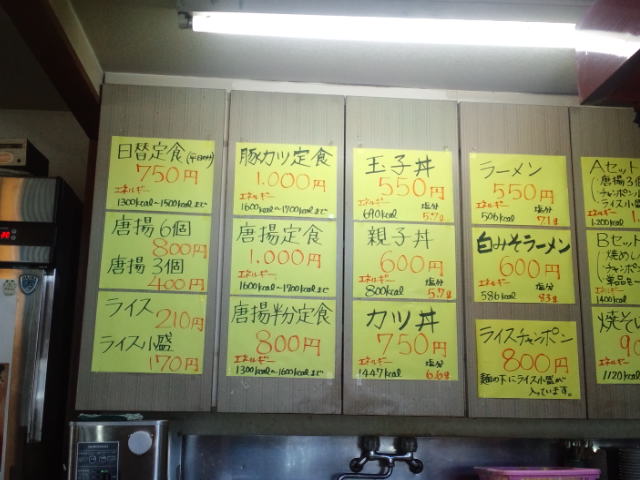 日替定食(平日のみ)
750円
エネルギー
1300kcal~1500kcalまで
唐揚6個
800円
唐揚3個
400円
ライス
210円
ライス小盛
170円
豚カツ定食
1,000円
エネルギー
1600kcal~1700kcalまで
唐揚定食
1,000円
エネルギー
1600kcal~1700kcalまで
唐揚半分定食
800円
エネルギー
1300kcal~1600kcalまで
玉子丼
550円
エネルギー 塩分
690kcal 5.7g
親子丼
600円
エネルギー 塩分
800kcal 5.7g
カツ丼
750円
エネルギー 塩分
1447kcal 6.6g
ラーメン
550円
エネルギー 塩分
506kcal 7.1g
白みそラーメン
600円
エネルギー 塩分
586kcal 8.3g
ライスチャンポン
800円
麺の下にライス小盛が
入っています。
Aセット
(唐揚3個
(チャンポン
(ライス小盛
エネルギー
1,200kcal
Bセット
(焼めし
(チャンポン
(単品
エネルギー
1400kcal
焼そ
90
エネルギー
1120kcal